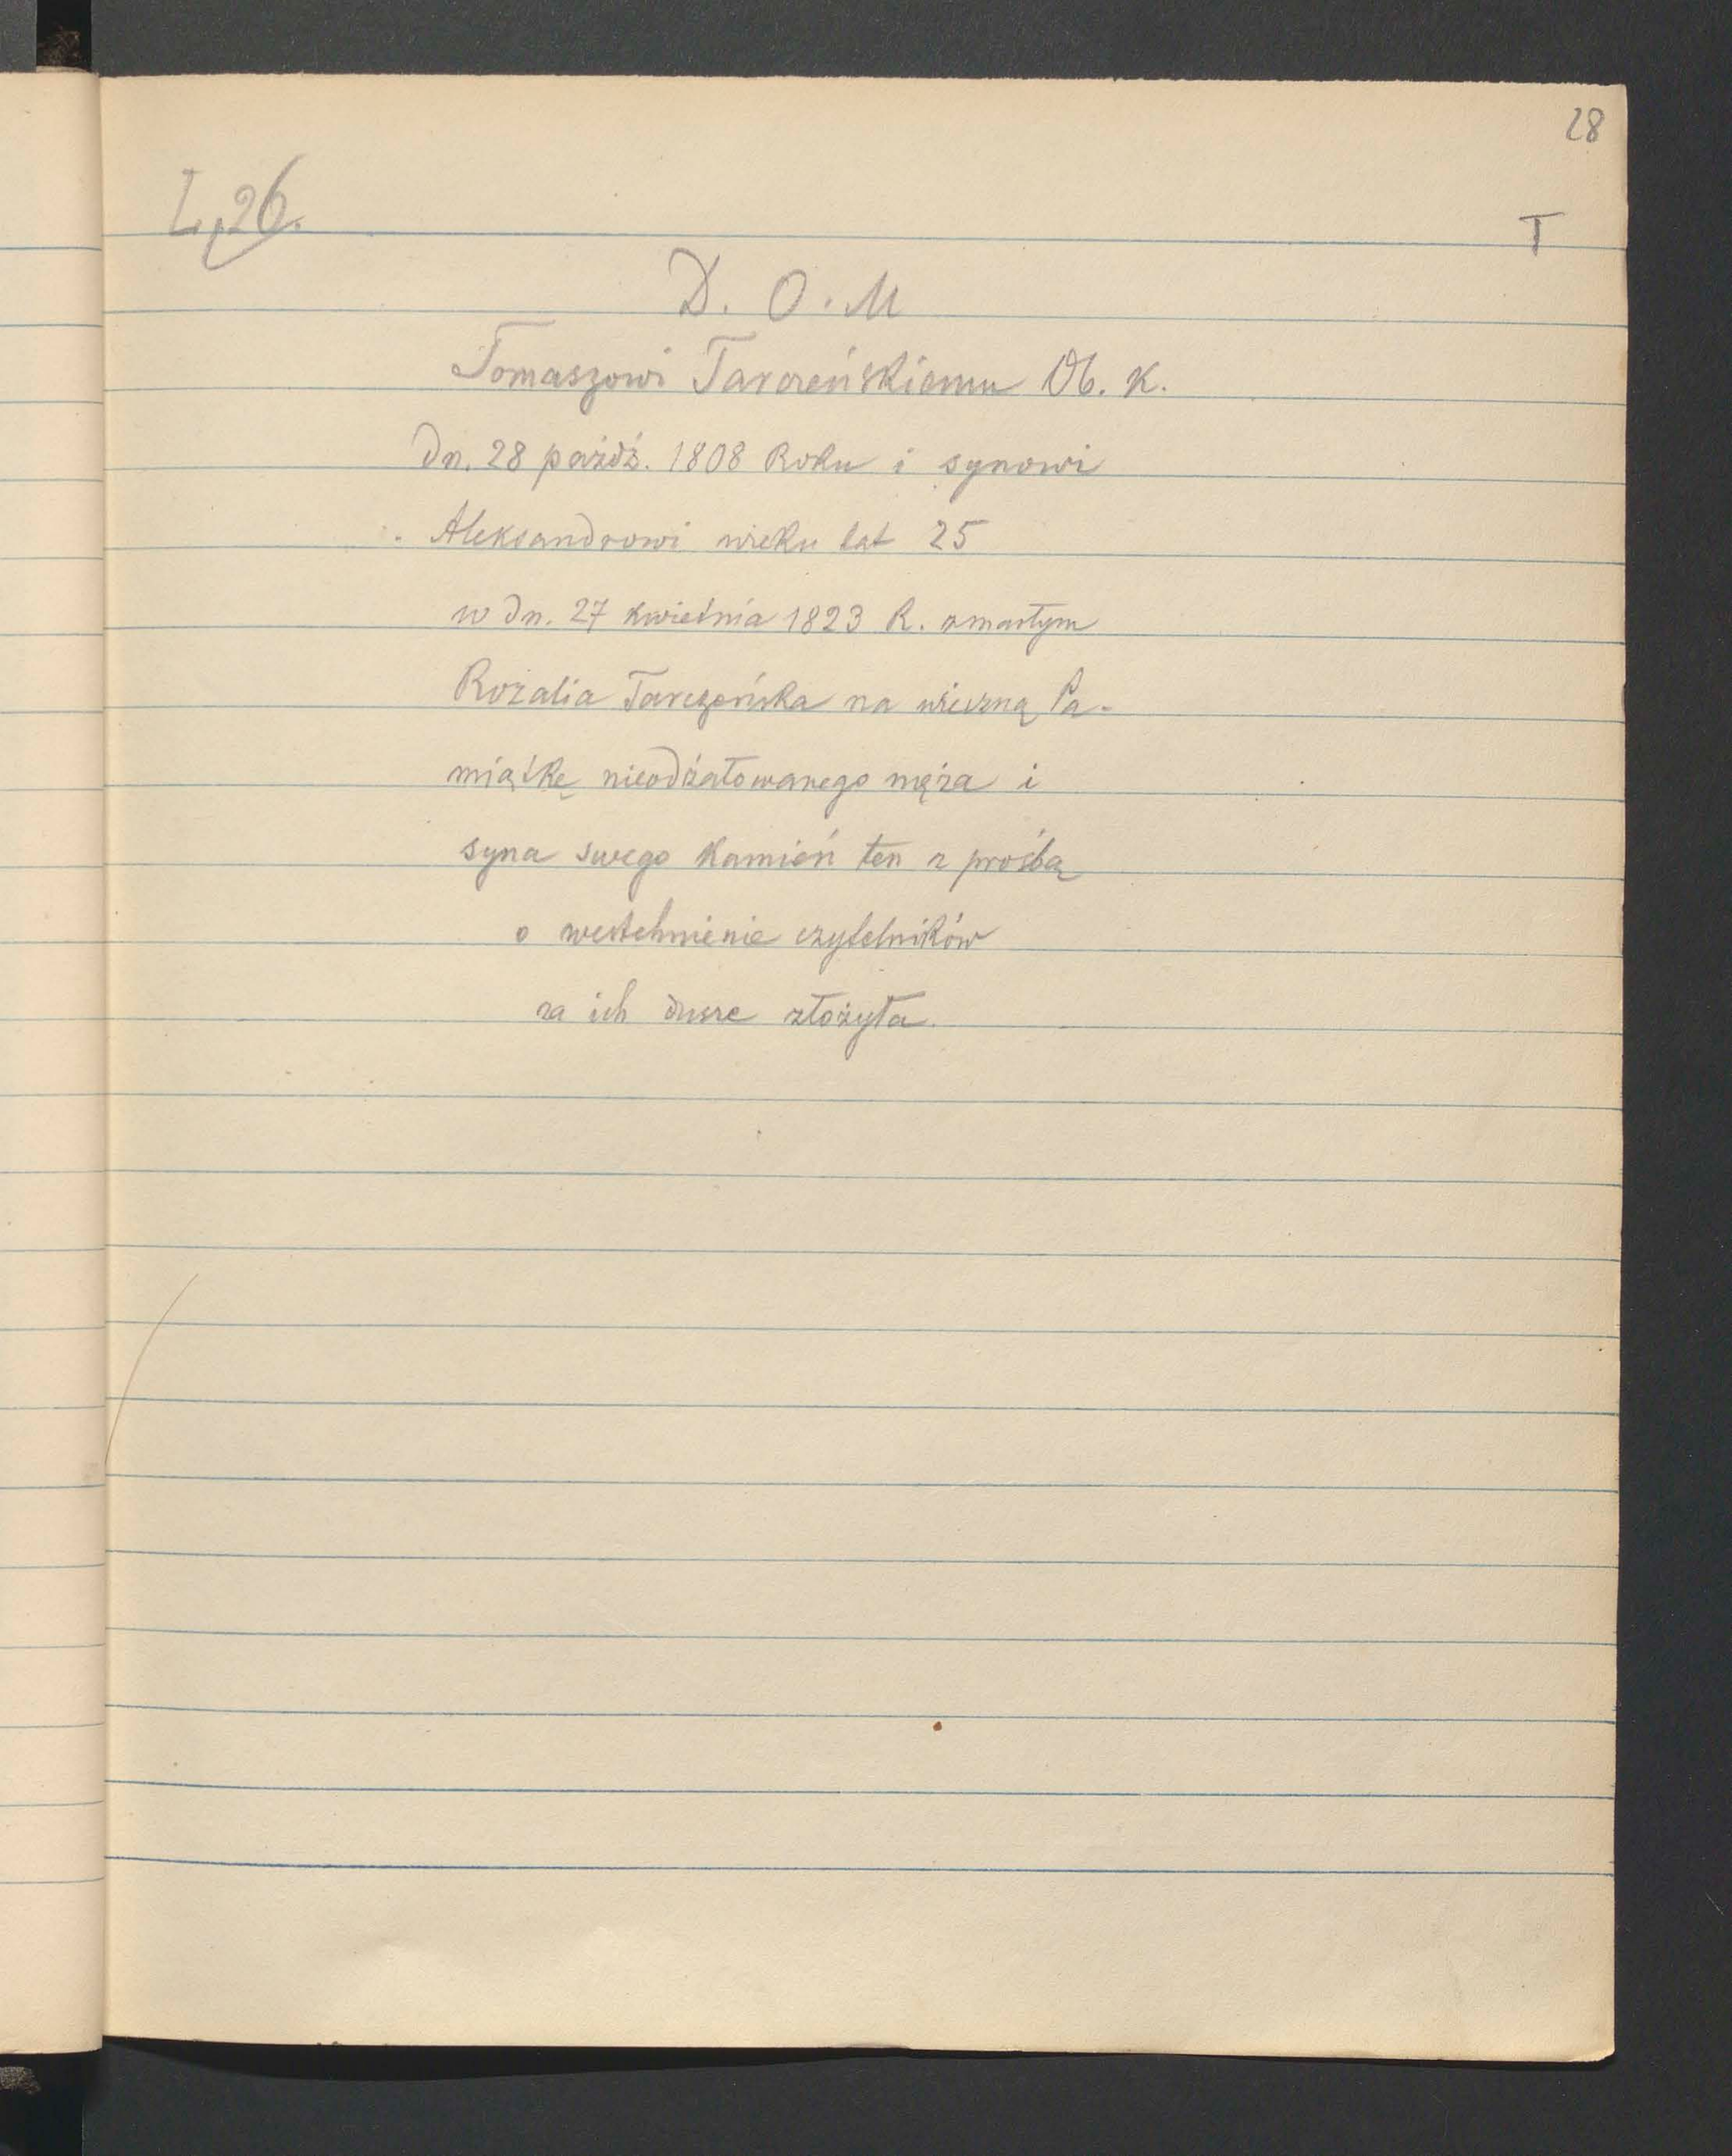 28
L. 26.
T
D. O. M
Tomaszowi Tarczeńskiemu Ob. K.
Dn. 28 paźdź. 1808 Roku i synowi
Aleksandrowi wieku lat 25
w dn. 27 kwietnia 1823 R. zmarłym
Rozalia Tarczeńska na wieczną Pa-
miątkę nieodżałowanego męża i
syna swego kamień ten z prośbą
o westchnienie czytelników
za ich dusze złożyła.